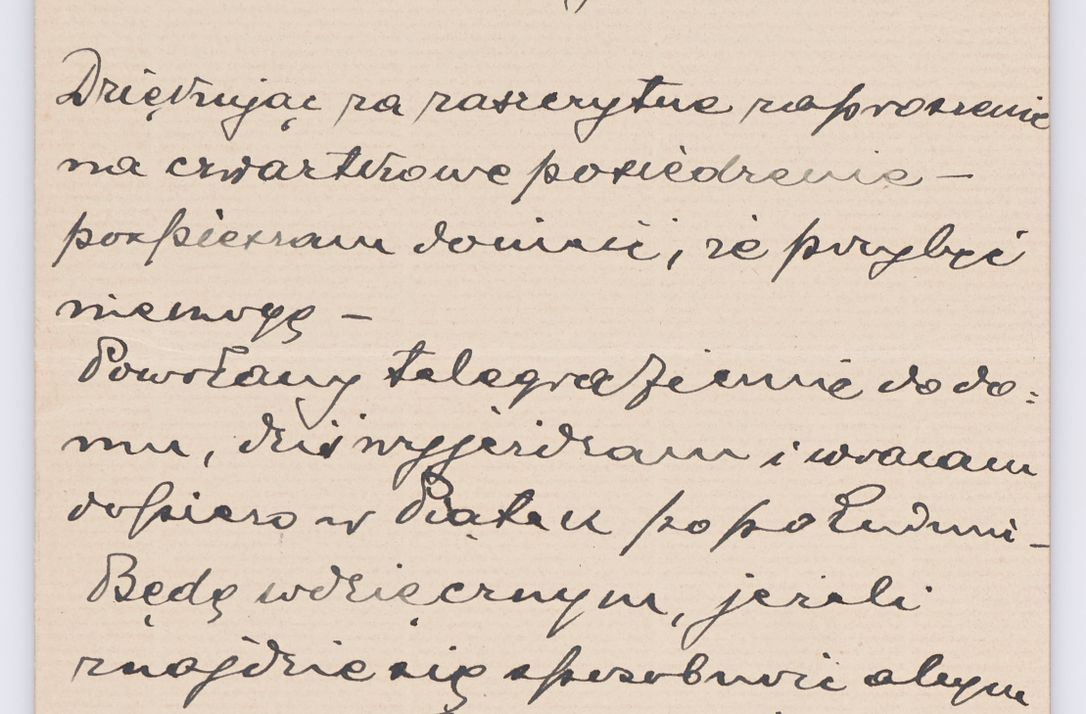 Dziękując za zaszczytne zaproszenie
na czwartkowe posiedzenie –
pospieszam donieść, że przybyć
niemogę –
Powołany telegraficznie do do=
mu, dziś wyjeżdżam i wracam
dopiero w Piątek po południu –
Będę wdzięcznym, jeżeli
znajdzie się sposobność abym